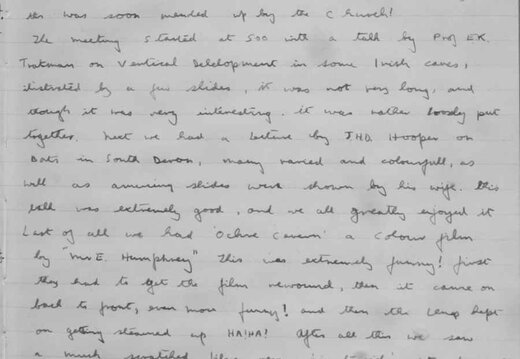 this was soon mended up by the Church!
The meeting started at 500 with a talk by Prof E.K.
Tratman on Vertical Delelopment in some Irish caves,
illistrated by a few slides, it was not very long, and
though it was very interesting. it was rather loosly put
together. Next we had a lecture by J.H.D. Hooper on
Bats in South Devon, many varied and colourfull, as
well as amusing slides were shown by his wife. this
talk was extremely good, and we all greatly enjoyed it
Last of all we had 'Ochre Cavern' a Colour film
by "Mr E. Humphrey" This was extremely funny! first
they had to get the film rewound, then it came on
back to front, even more funny! and then the lens kept
on getting steamed up HA!HA! After all this we saw
a much scratched